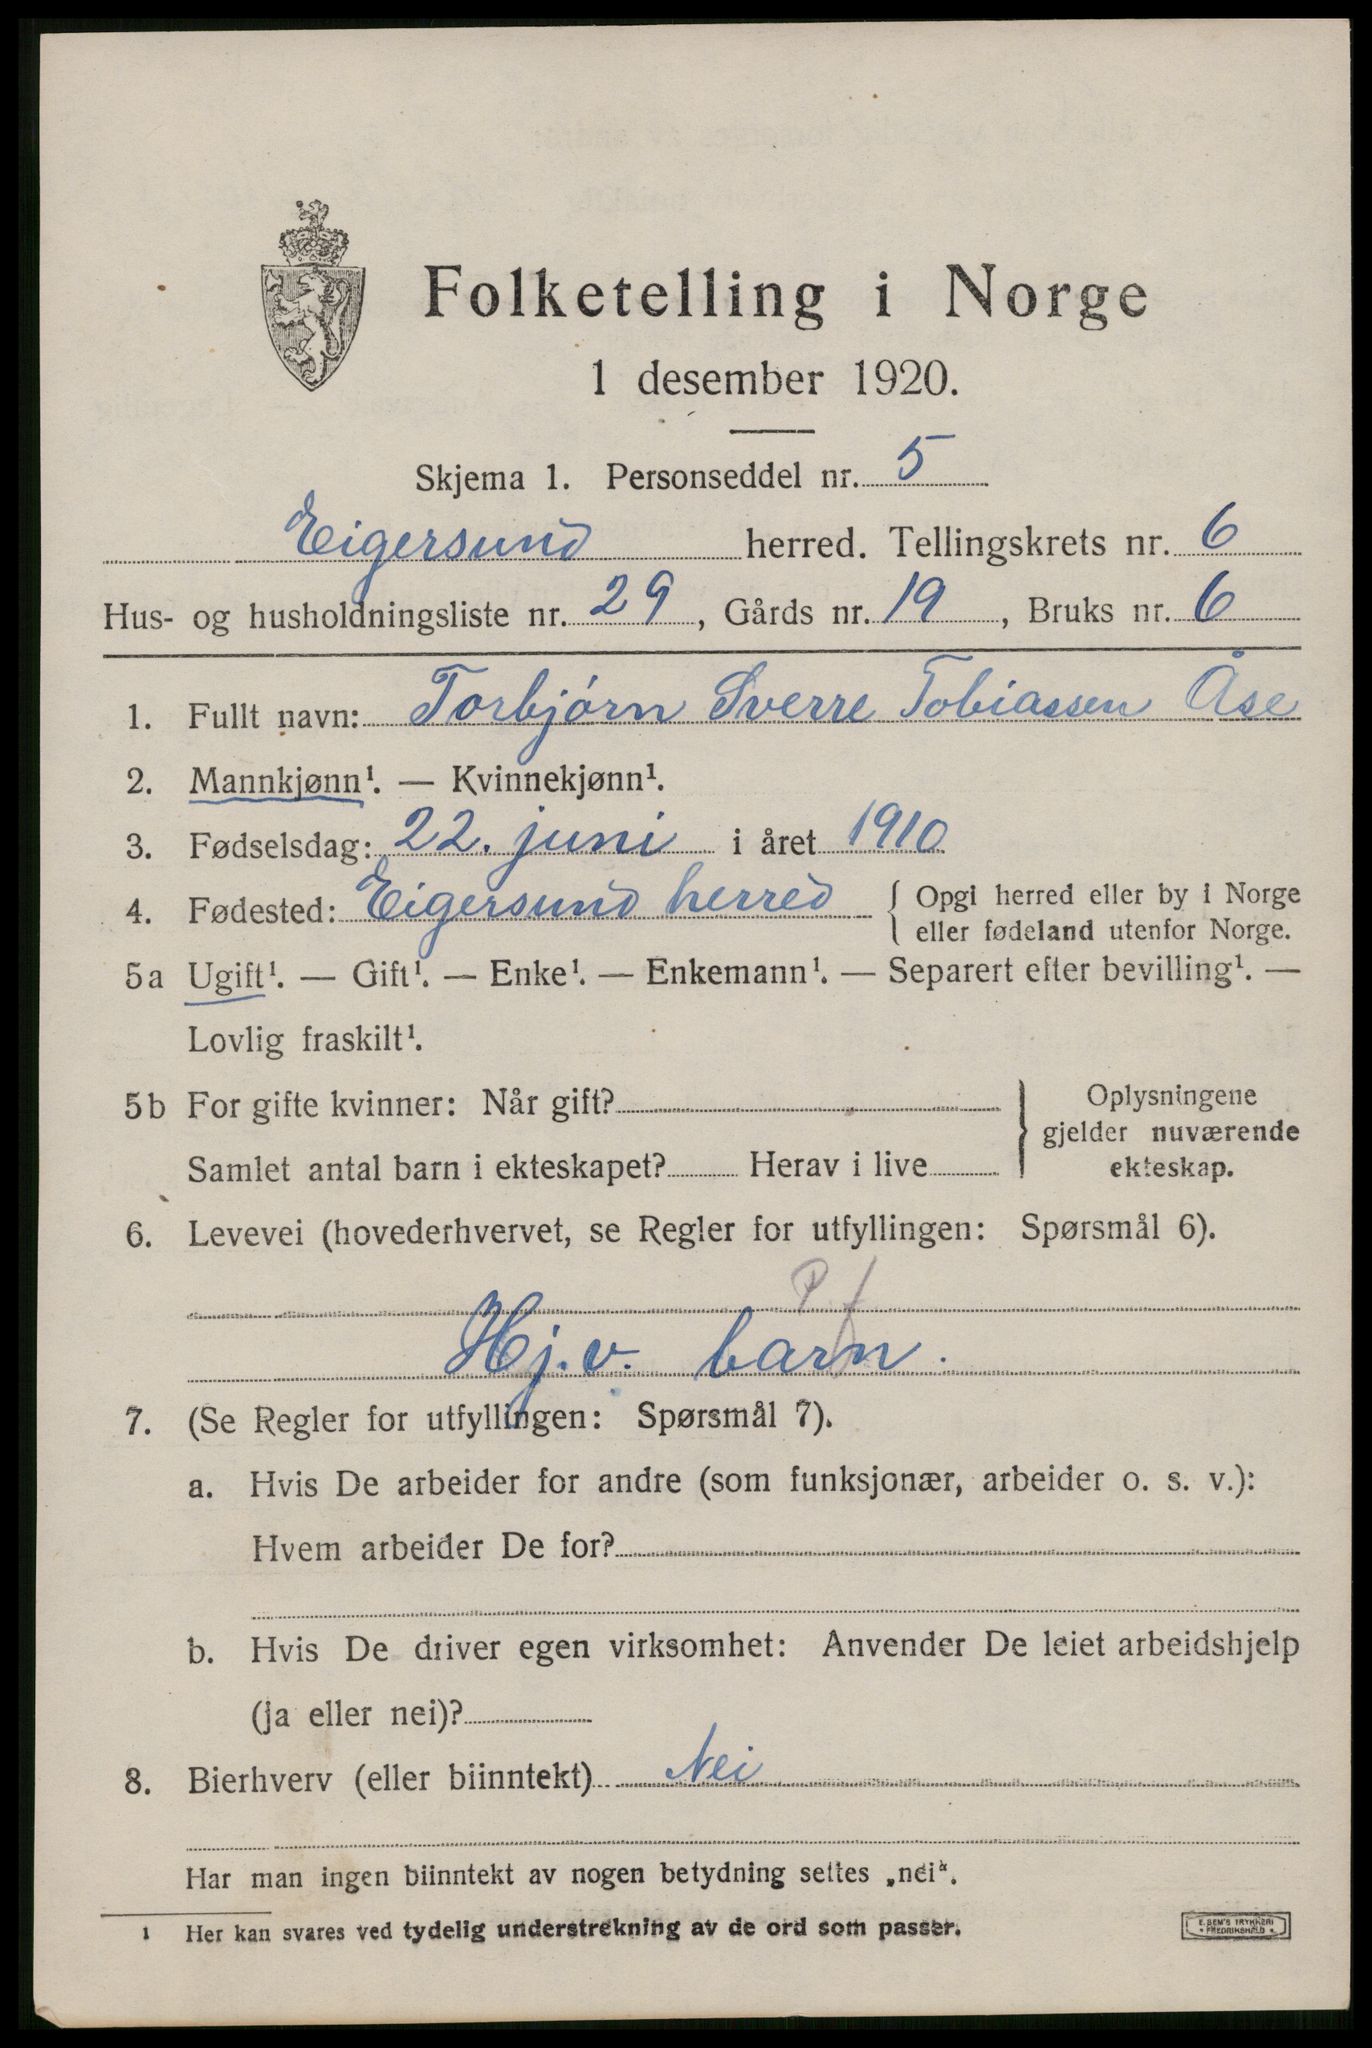 Folketelling i Norge
1 desember 1920.
Skjema 1. Personseddel nr. 5
Eigersund herred. Tellingskrets nr. 6
Hus- og husholdningsliste nr. 29, Gårds nr. 19, Bruks nr. 6
1. Fullt navn: Torbjørn Sverre Tobiassen Åse
2. Mannkjønn¹. — Kvinnekjønn¹.
3. Fødselsdag: 22. juni i året 1910
4. Fødested: Eigersund herred { Opgi herred eller by i Norge
eller fødeland utenfor Norge.
5a Ugift¹. — Gift¹. — Enke¹. — Enkemann¹. — Separert efter bevilling¹. —
Lovlig fraskilt¹.
5b For gifte kvinner: Når gift?
Samlet antal barn i ekteskapet? Herav i live
} Oplysningene
gjelder nuværende
ekteskap.
6. Levevei (hovederhvervet, se Regler for utfyllingen: Spørsmål 6).
Hj.v. barn.
7. (Se Regler for utfyllingen: Spørsmål 7).
a. Hvis De arbeider for andre (som funksjonær, arbeider o. s. v.):
Hvem arbeider De for?
b. Hvis De driver egen virksomhet: Anvender De leiet arbeidshjelp
(ja eller nei)?
8. Bierhverv (eller biinntekt) Nei
Har man ingen biinntekt av nogen betydning settes „nei".
1 Her kan svares ved tydelig understrekning av de ord som passer.
E. SEM'S TRYKKERI
• FREDRIKSHALD •